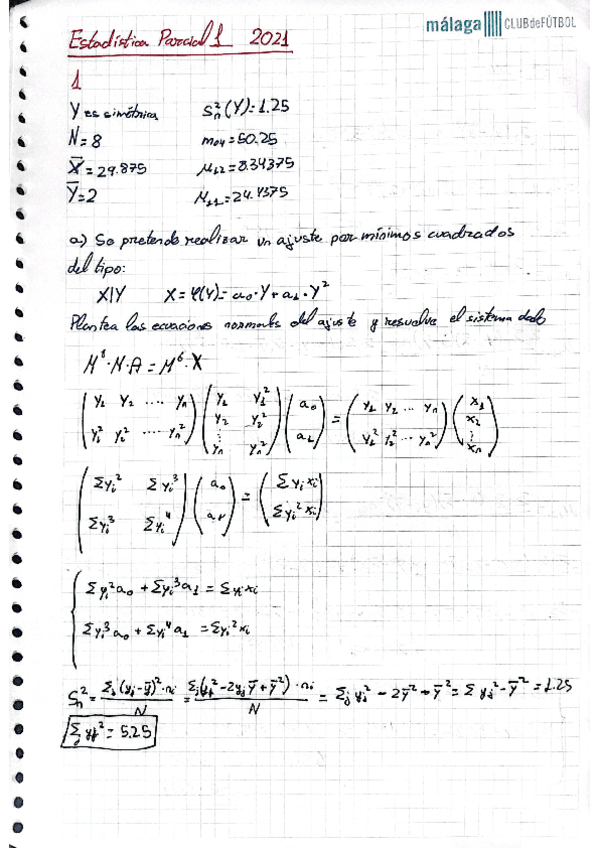 málaga CLUBdeFÚTBOL
Estadística Parcial 1 2021
1
Y es simétrica S_n^2(Y)=1.25
N=8 m_04=50.25
X̄=29.875 μ_12=8.34375
Ȳ=2 μ_11=24.4375
a) Se pretende realizar un ajuste por mínimos cuadrados
del tipo:
X|Y X=φ(Y)=a_0·Y+a_1·Y^2
Plantea las ecuaciones normales del ajuste y resuelve el sistema dado
M^t·M·A=M^t·X
(y_1 y_2 .... y_n; y_1^2 y_2^2 ..... y_n^2)(y_1 y_1^2; y_2 y_2^2; ⋮; y_n y_n^2)(a_0; a_1)=(y_1 y_2 ... y_n; y_1^2 y_2^2 ... y_n^2)(x_1; x_2; ⋮; x_n)
(Σy_i^2 Σy_i^3; Σy_i^3 Σy_i^4)(a_0; a_1)=(Σy_i x_i; Σy_i^2 x_i)
{ Σy_i^2 a_0 + Σy_i^3 a_1 = Σy_i x_i
Σy_i^3 a_0 + Σy_i^4 a_1 = Σy_i^2 x_i
S_n^2 = Σ_j(y_j-ȳ)^2·n_i / N = Σ_j(y_j^2-2y_jȳ+ȳ^2)·n_i / N = Σ_j y_j^2 - 2ȳ^2 + ȳ^2 = Σ y_j^2 - ȳ^2 = 1.25
Σ_j y_j^2 = 5.25